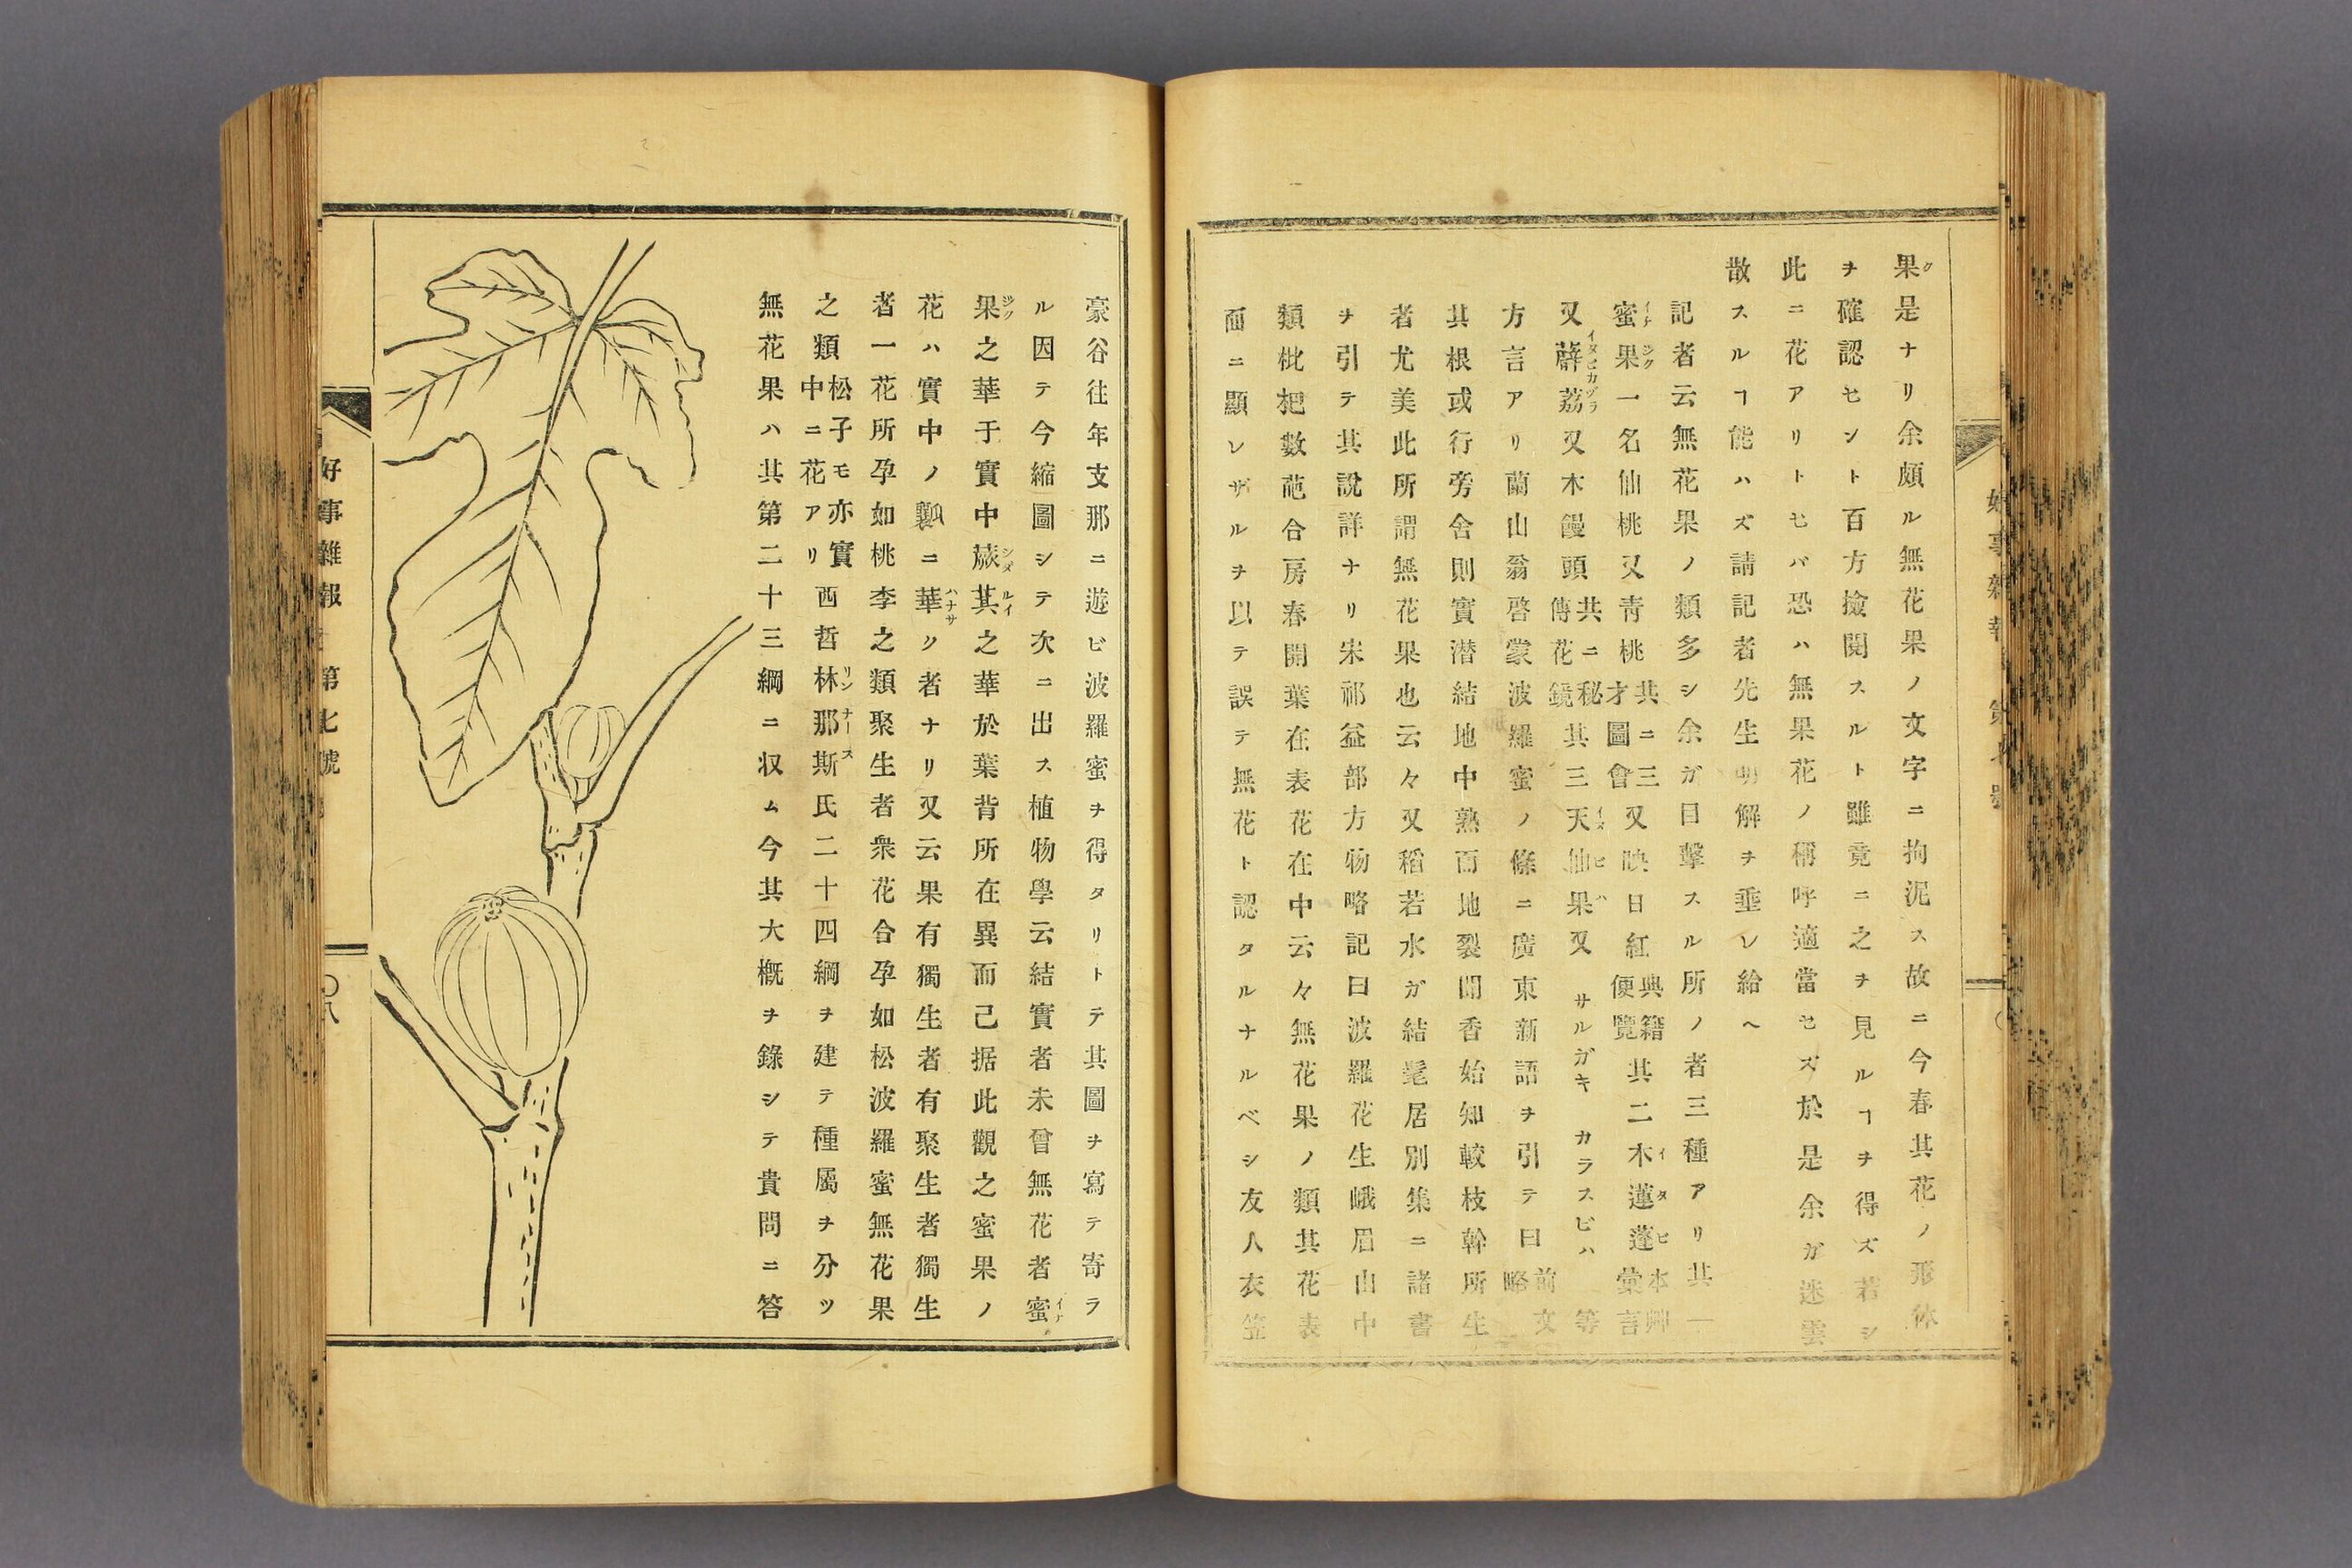 果是ナリ余頗ル無花果ノ文字ニ拘泥ス故ニ今春其花ノ形体
ヲ確認セント百方撿閲スルト雖竟ニ之ヲ見ルヿヲ得ズ若シ
此ニ花アリトセバ恐ハ無果花ノ稱呼適當セズ於是余ガ迷雲
散スルヿ能ハズ請記者先生明解ヲ垂レ給ヘ
記者云無花果ノ類多シ余ガ目擊スル所ノ者三種アリ其一
蜜果一名仙桃又青桃共ニ三才圖會又映日紅典籍便覽其二木蓮蓬本艸彙言
又薜荔又木饅頭共ニ秘傳花鏡其三天仙果又サルガキカラスビハ等
方言アリ蘭山翁啓蒙波羅蜜ノ條ニ廣東新語ヲ引テ曰前略文
其根或行旁舍則實潜結地中熟而地裂聞香始知較枝幹所生
者尤美此所謂無花果也云々又稻若水ガ結髦居別集ニ諸書
ヲ引テ其說詳ナリ宋祁益部方物略記曰波羅花生峨眉山中
類枇杷數葩合房春開葉在表花在中云々無花果ノ類其花表
面ニ顯レザルヲ以テ誤テ無花ト認タルナルベシ友人衣笠
豪谷往年支那ニ遊ビ波羅蜜ヲ得タリトテ其圖ヲ寫テ寄ラ
ル因テ今縮圖シテ次ニ出ス植物學云結實者未曾無花者蜜
果之華于實中蕨其之華於葉背所在異而己据此觀之蜜果ノ
花ハ實中ノ瓤ニ華ク者ナリ又云果有獨生者有聚生者獨生
者一花所孕如桃李之類聚生者衆花合孕如松波羅蜜無花果
之類松子モ亦實中ニ花アリ西哲林那斯氏二十四綱ヲ建テ種屬ヲ分ツ
無花果ハ其第二十三綱ニ収ム今其大概ヲ錄シテ貴問ニ答
好事雜報 第七號
〇八